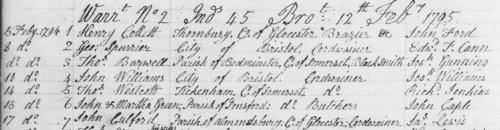 Warrt. No. 2 Ind. 45 Brot. 12th Feby. 1795
5 Feby. 1794 1 Henry Collett Thornbury, Co. of Glocester Brazier &c John Ford
8 do. 2 Geo. Spurrier City of Bristol Cordwainer Edwd. T. Cann
do. do. 3 Thos. Barwell Parish of Bedminster, Co. of Somerset, Blacksmith Jos. Gunning
10 do. 4 John Williams City of Bristol Cordwainer Jos. Williams
14 do. 5 Thos. Westcott Tickenham, Co. of Somerset do. Richd. Jenkins
15 do. 6 John & Martha Green; Parish of do. Butchers John Caple
17 do. 7 John Parish of Almondsbury, Co. of Glocester; Cordwainer Jas. Lewis